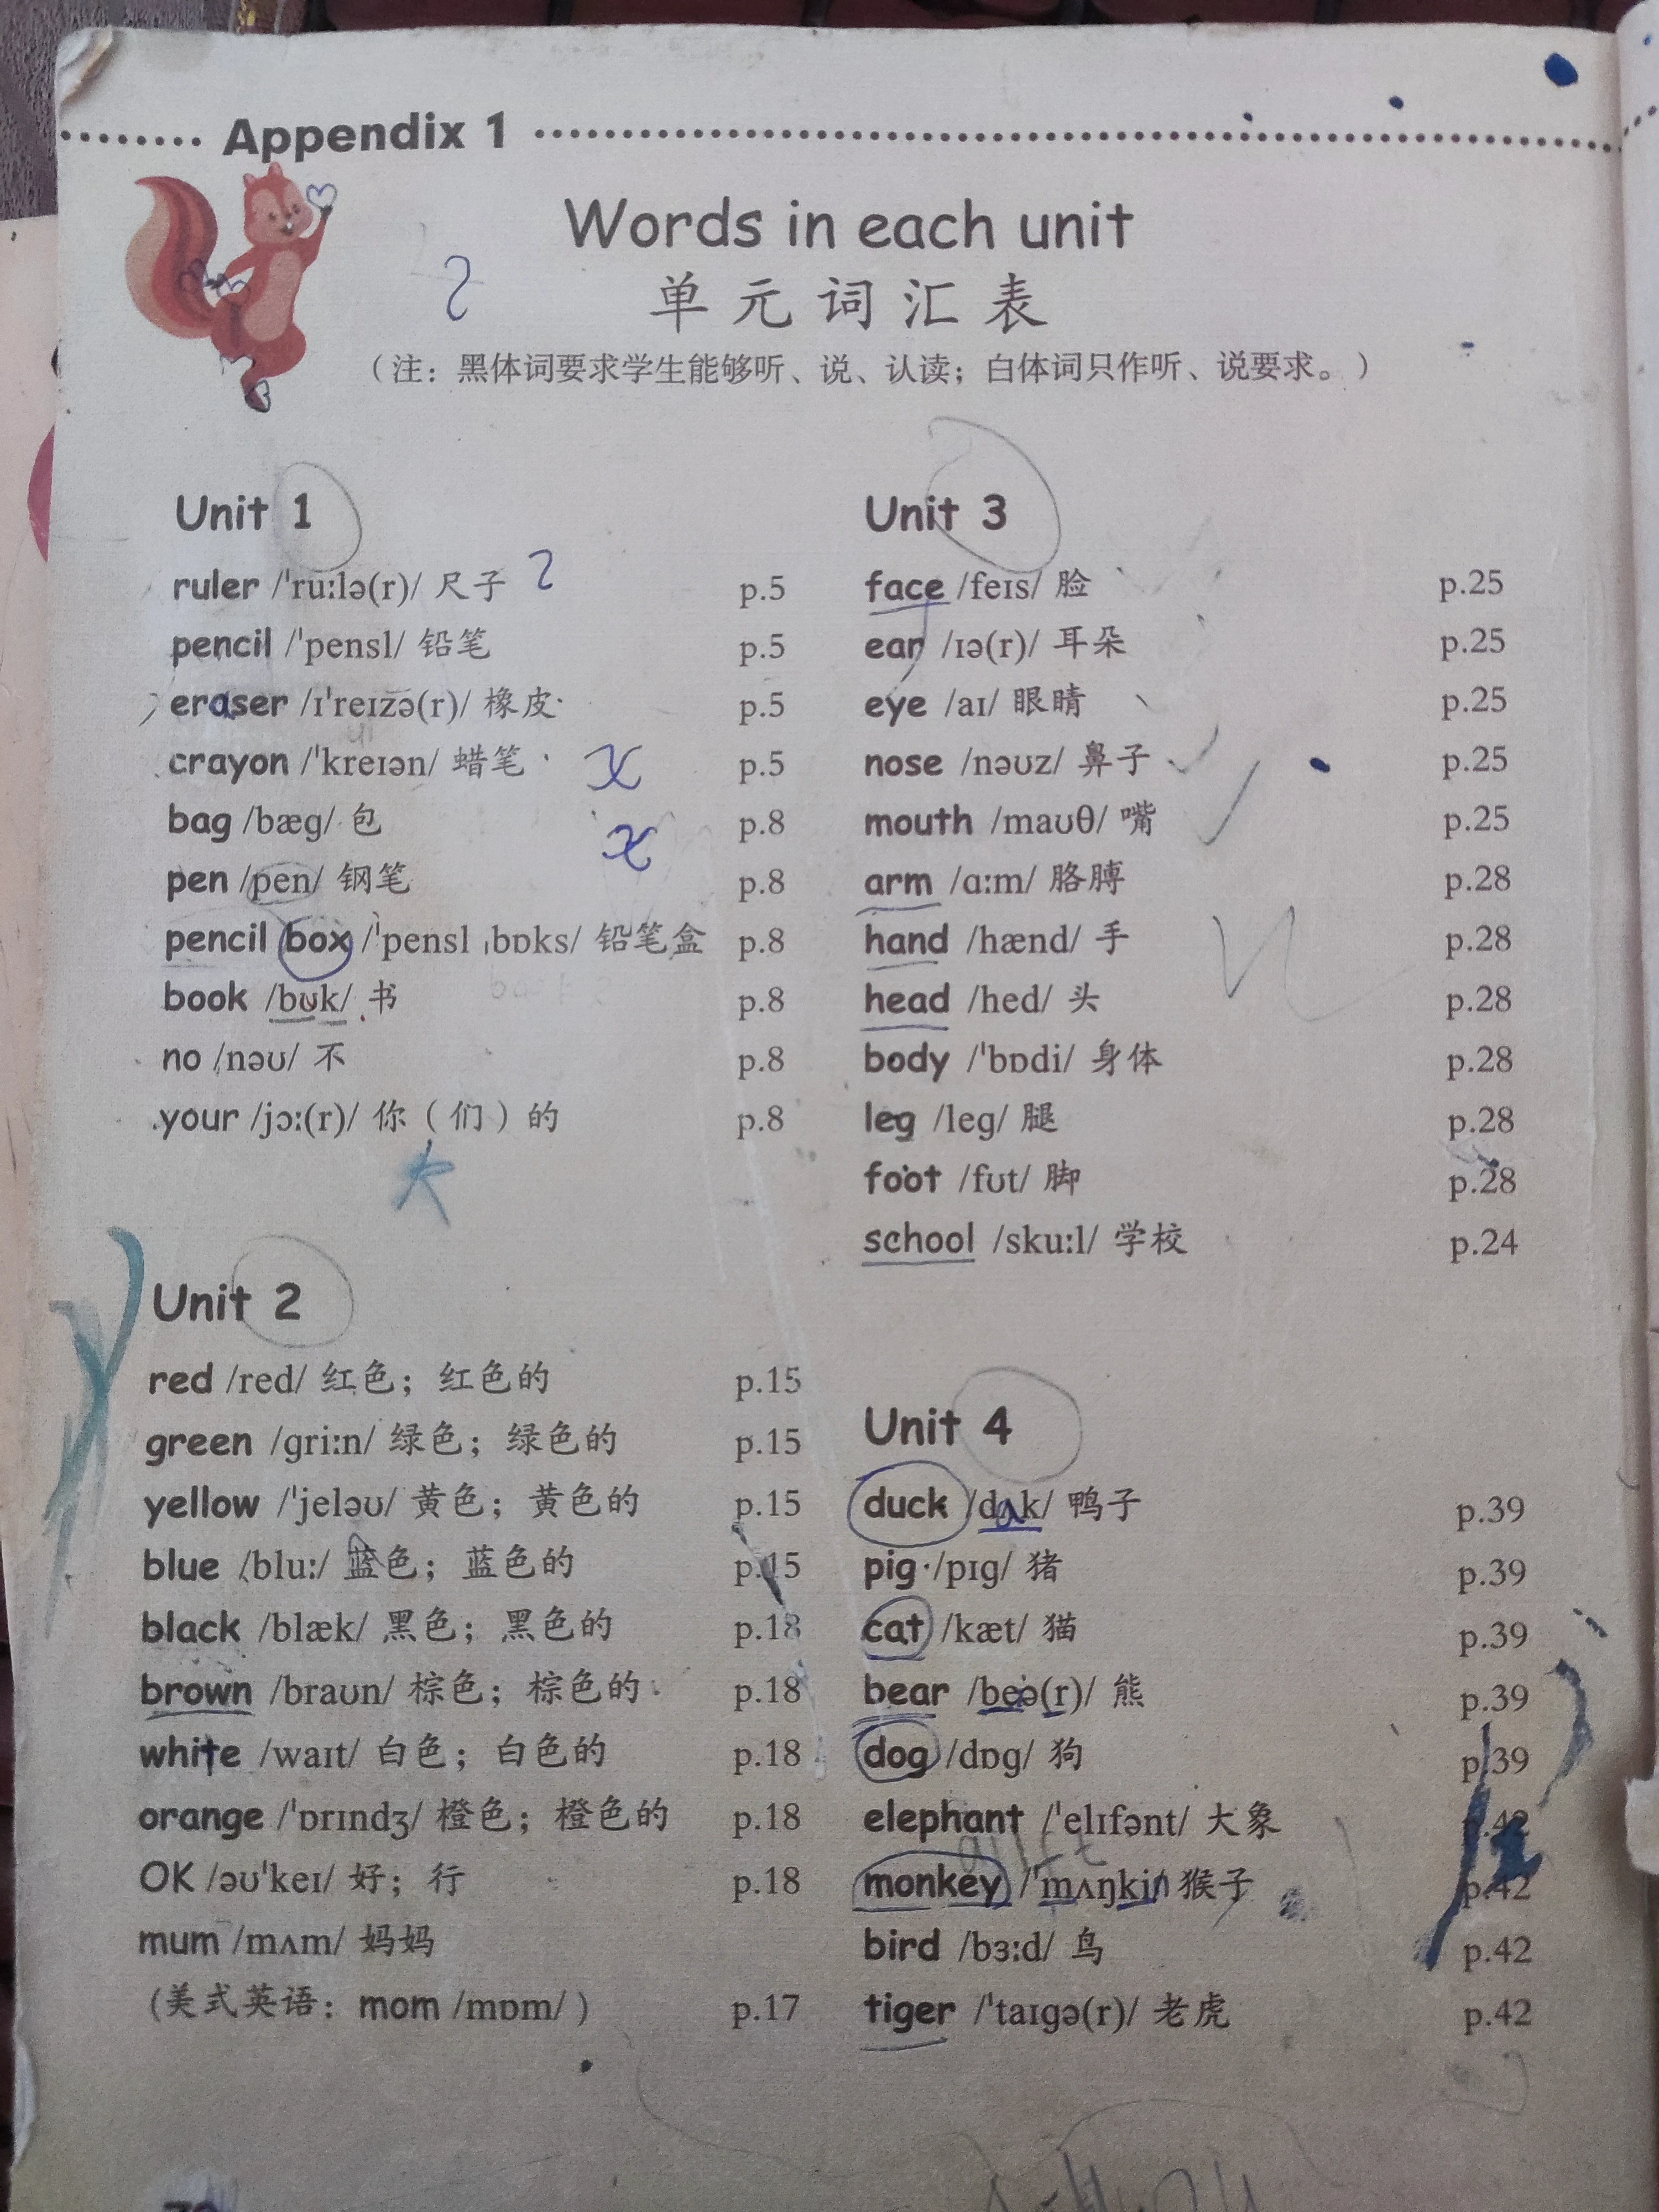 Appendix 1
Words in each unit
单元词汇表
（注：黑体词要求学生能够听、说、认读；白体词只作听、说要求。）
Unit 1
ruler /ˈruːlə(r)/ 尺子 p.5
pencil /ˈpensl/ 铅笔 p.5
eraser /ɪˈreɪzə(r)/ 橡皮 p.5
crayon /ˈkreɪən/ 蜡笔 p.5
bag /bæɡ/ 包 p.8
pen /pen/ 钢笔 p.8
pencil box /ˈpensl ˌbɒks/ 铅笔盒 p.8
book /bʊk/ 书 p.8
no /nəʊ/ 不 p.8
your /jɔː(r)/ 你（们）的 p.8
Unit 2
red /red/ 红色；红色的 p.15
green /ɡriːn/ 绿色；绿色的 p.15
yellow /ˈjeləʊ/ 黄色；黄色的 p.15
blue /bluː/ 蓝色；蓝色的 p.15
black /blæk/ 黑色；黑色的 p.18
brown /braʊn/ 棕色；棕色的 p.18
white /waɪt/ 白色；白色的 p.18
orange /ˈɒrɪndʒ/ 橙色；橙色的 p.18
OK /əʊˈkeɪ/ 好；行 p.18
mum /mʌm/ 妈妈
（美式英语：mom /mɒm/ ） p.17
Unit 3
face /feɪs/ 脸 p.25
ear /ɪə(r)/ 耳朵 p.25
eye /aɪ/ 眼睛 p.25
nose /nəʊz/ 鼻子 p.25
mouth /maʊθ/ 嘴 p.25
arm /ɑːm/ 胳膊 p.28
hand /hænd/ 手 p.28
head /hed/ 头 p.28
body /ˈbɒdi/ 身体 p.28
leg /leɡ/ 腿 p.28
foot /fʊt/ 脚 p.28
school /skuːl/ 学校 p.24
Unit 4
duck /dʌk/ 鸭子 p.39
pig /pɪɡ/ 猪 p.39
cat /kæt/ 猫 p.39
bear /beə(r)/ 熊 p.39
dog /dɒɡ/ 狗 p.39
elephant /ˈelɪfənt/ 大象 p.42
monkey /ˈmʌŋki/ 猴子 p.42
bird /bɜːd/ 鸟 p.42
tiger /ˈtaɪɡə(r)/ 老虎 p.42